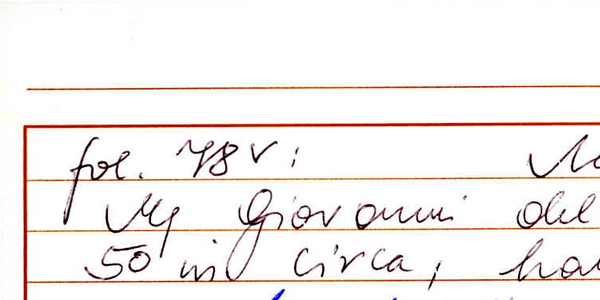 fol. 78v:
Mg Giovanni del
50 in circa, ha